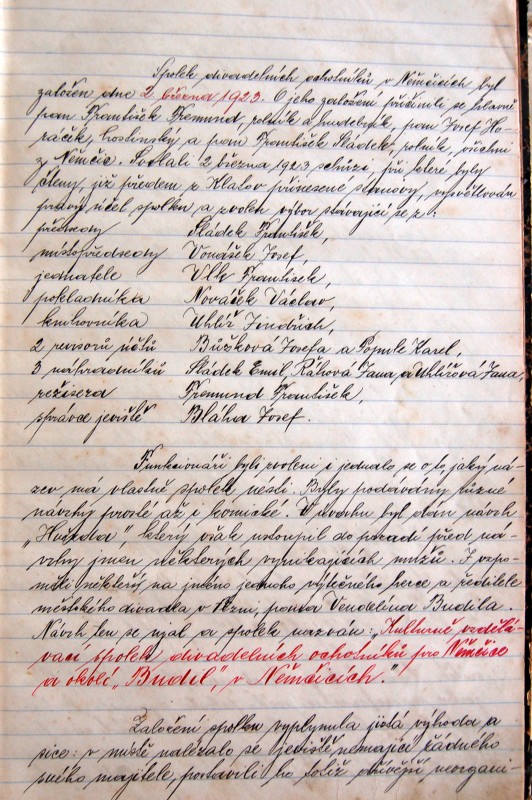 Spolek divadelních ochotníků v Němčicích byl
založen dne 2. března 1923. O jeho založení přičinili se hlavně
pan František Premund, rolník a hudebník, pan Josef Ho-
ráčík, hostinský, a pan František Sládek, rolník, všichni
z Němčic. Svolali 2. března 1923 schůzi, při které byly
čteny, již předem z Klatov přinesené stanovy, vysvětlován
pravý účel spolku a zvolen výbor stávající se z:
předsedy Sládek František,
místopředsedy Vonášek Josef,
jednatele Vlk František,
pokladníka Nováček Václav,
knihovníka Uhlíř Jindřich,
2 revisorů účtů Bůžková Josefa a Popule Karel,
3 náhradníků Sládek Emil, Ráhová Jana, a Uhlířová Jana,
režisera Premund František,
správce jeviště Bláha Josef.
Funkcionáři byli zvoleni i jednalo se o to, jaký ná-
zev má vlastně spolek nésti. Byly podávány různé
návrhy prosté až i komické. V úvahu byl dán návrh
„Hvězda" který však ustoupil do pozadí před ná-
vrhy jmen některých vynikajících mužů. I vzpo-
mněli někteří na jméno jednoho výtečného herce a ředitele
městského divadla v Plzni, pana Vendelína Budila.
Návrh ten se ujal a spolek nazván: „Kulturně vzdělá-
vací spolek divadelních ochotníků pro Němčice
a okolí „Budil", v Němčicích."
Založení spolku vyplynula jistá výhoda a
sice: v místě nalézalo se jeviště nemající řádného
svého majitele, postavili ho totiž dřívější neorgani-